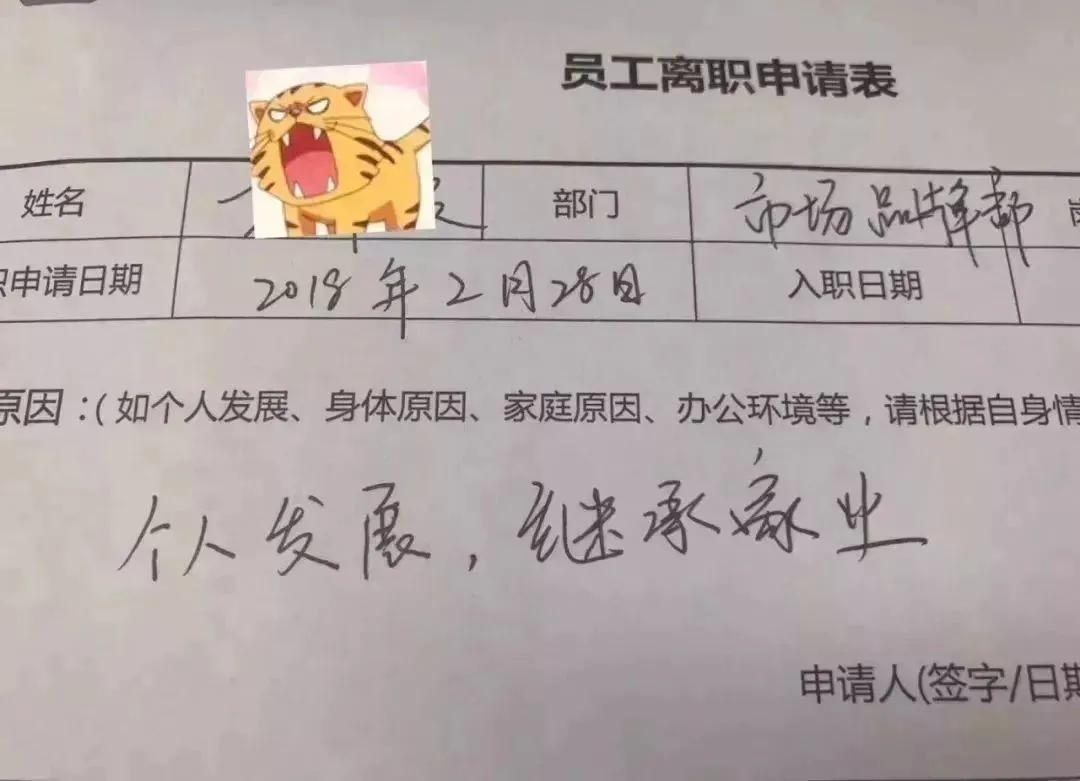 员工离职申请表
姓名 部门 市场品牌部
职申请日期 2018年2月28日 入职日期
原因：(如个人发展、身体原因、家庭原因、办公环境等，请根据自身情
个人发展，继承家业
申请人(签字/日期